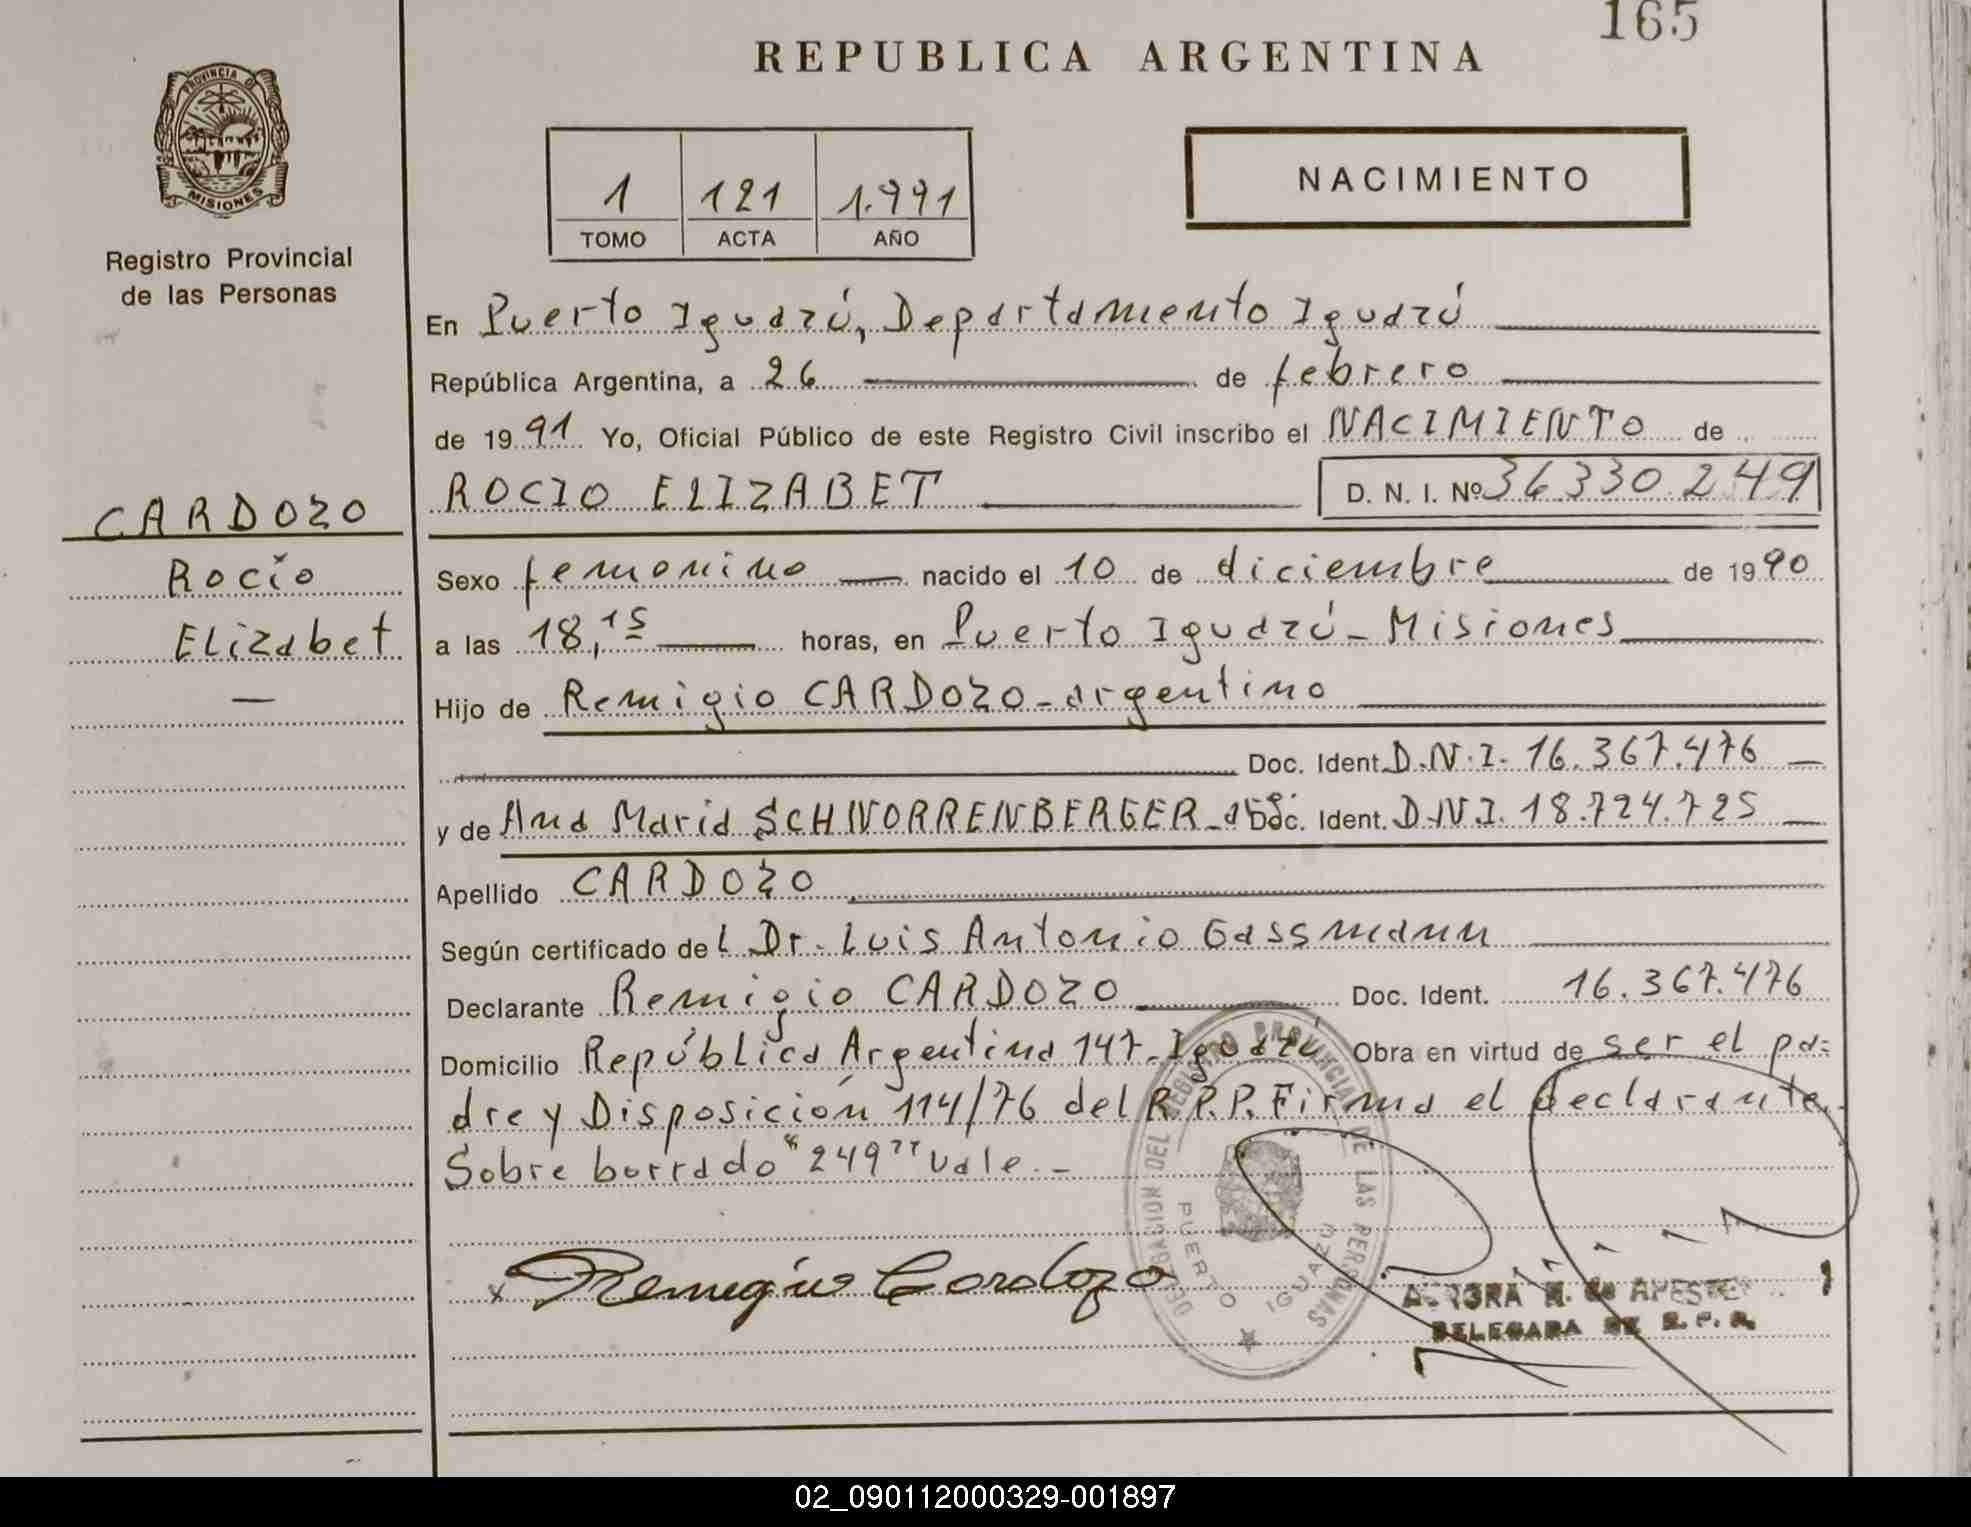 165
REPUBLICA ARGENTINA
PROVINCIA DE
MISIONES
Registro Provincial
de las Personas
1 121 1.991
TOMO ACTA AÑO
NACIMIENTO
En Puerto Iguazú, Departamento Iguazú
República Argentina, a 26 de febrero
de 1991 Yo, Oficial Público de este Registro Civil inscribo el NACIMIENTO de
ROCIO ELIZABET D. N. I. Nº 36330249
CARDOZO
Rocío
Elizabet
Sexo femenino nacido el 10 de diciembre de 1990
a las 18,15 horas, en Puerto Iguazú - Misiones
Hijo de Remigio CARDOZO - argentino
Doc. Ident. D.N.I. 16.367.476
y de Ana Maria SCHNORRENBERGER - Doc. Ident. D.N.I. 18.724.725
Apellido CARDOZO
Según certificado del Dr. Luis Antonio Gassmann
Declarante Remigio CARDOZO Doc. Ident. 16.367.476
Domicilio República Argentina 147 - Iguazú Obra en virtud de ser el pa=
dre y Disposición 114/76 del R.P.P. Firma el declarante.
Sobre borrado "249" vale.-
x Remigio Cardozo
DELEGACION DEL REGISTRO PROVINCIAL DE LAS PERSONAS
PUERTO IGUAZU
DELEGADA DE R. P. P.
02_090112000329-001897